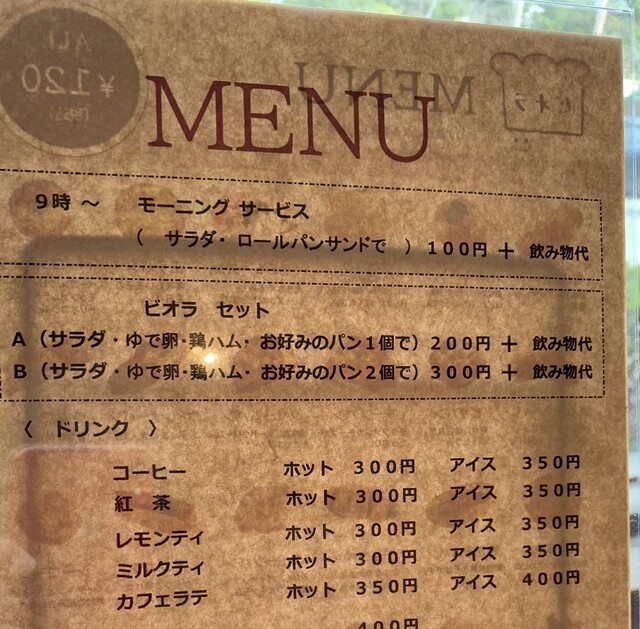 ALL
¥120
MENU
ビオラ
MENU
9時～ モーニング サービス
( サラダ・ロールパンサンドで ) 100円 + 飲み物代
ビオラ セット
A (サラダ・ゆで卵・鶏ハム・お好みのパン1個で) 200円 + 飲み物代
B (サラダ・ゆで卵・鶏ハム・お好みのパン2個で) 300円 + 飲み物代
〈 ドリンク 〉
コーヒー ホット 300円 アイス 350円
紅 茶 ホット 300円 アイス 350円
レモンティ ホット 300円 アイス 350円
ミルクティ ホット 300円 アイス 350円
カフェラテ ホット 350円 アイス 400円
400円